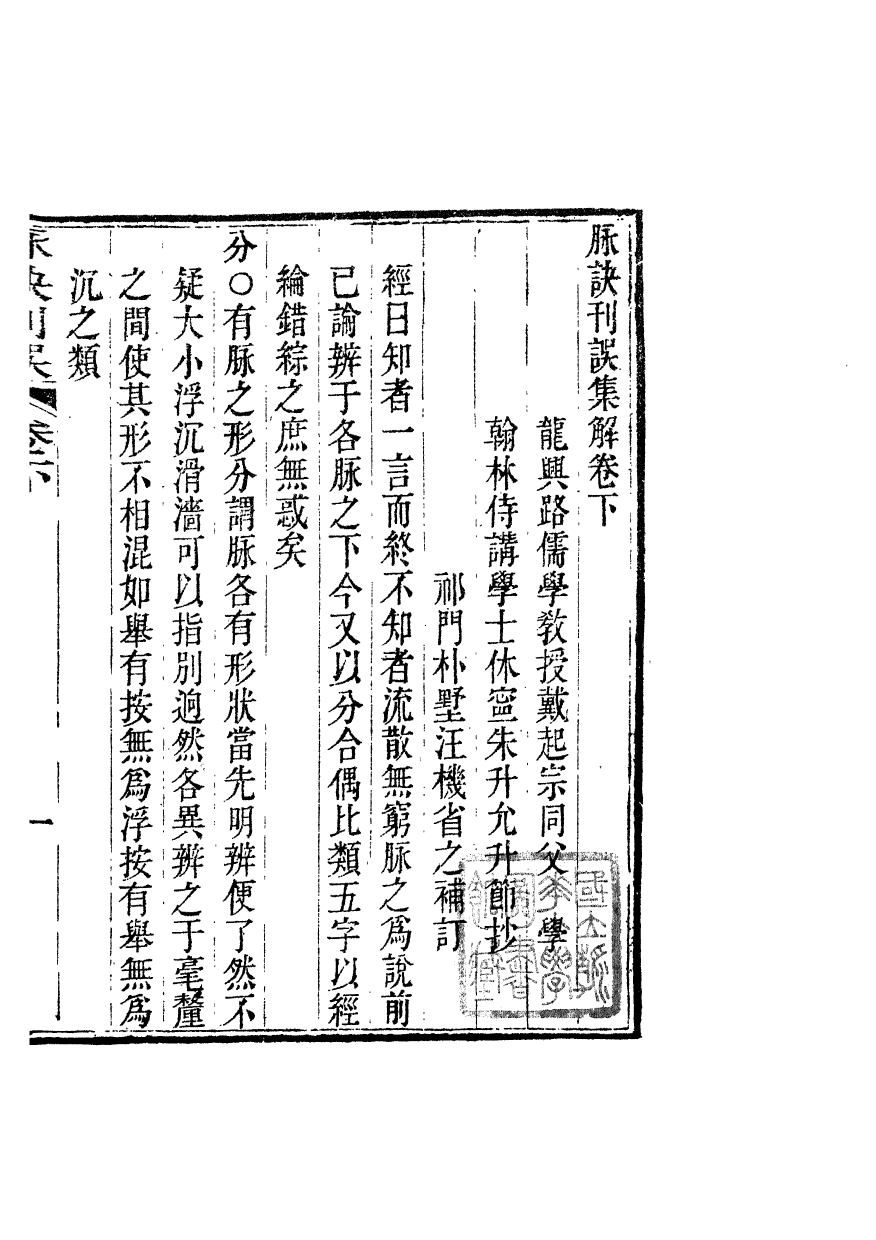 脉訣刊誤集解卷下
龍興路儒學敎授戴起宗同父　學
翰林侍講學士休寧朱升允升節抄
祁門朴墅汪機省之補訂
經曰知者一言而終不知者流散無窮脉之爲說前
已論辨于各脉之下今又以分合偶比類五字以經
綸錯綜之庶無惑矣
分○有脉之形分謂脉各有形狀當先明辨便了然不
疑大小浮沉滑濇可以指別逈然各異辨之于毫釐
之間使其形不相混如舉有按無爲浮按有舉無爲
沉之類
脉訣刊誤　卷下　一